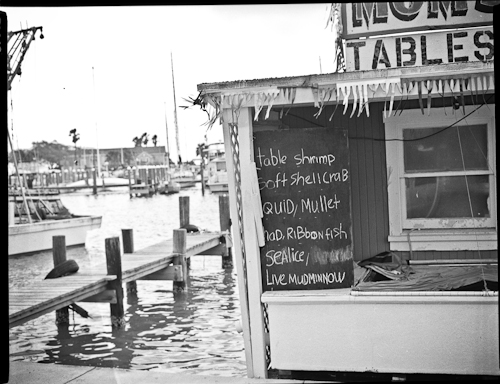 MOM'S
TABLES
table shrimp
soft shell craB
QUID, Mullet
haD, RIBBONfISh
SEAlice,
LIVE MUDMINNOW